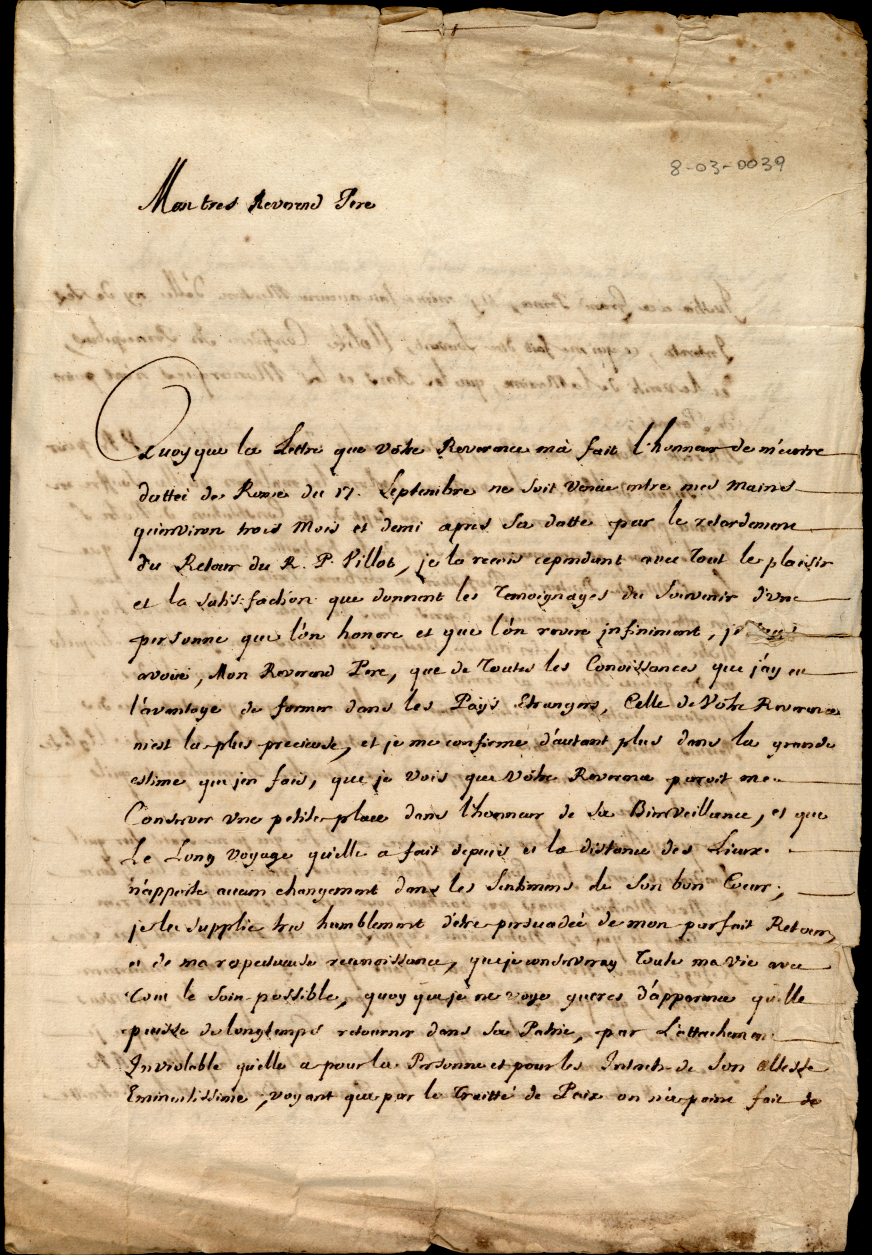 8-03-0039
Mon tres Reverend Pere
Quoy que la Lettre que Vôtre Reverence m'a fait l'honneur de m'ecrire
dattée de Rome du 17. Septembre ne soit venue entre mes mains
qu'environ trois Mois et demi apres sa datte par le retardement
du Retour du R. P. Villot, je la receus cependant avec tout le plaisir
et la satisfaction que donnent les Temoignages du Souvenir d'une
personne que l'on honore et que l'on revere infiniment, je
avoüer, Mon Reverend Pere, que de Toutes les Conoissances que j'ay eu
l'avantage de former dans les Pays Etrangers, Celle de Vôtre Reverence
m'est la plus precieuse, et je me confirme d'autant plus dans la grande
estime que j'en fais, que je vois que Vôtre Reverence paroit me
Conserver une petite place dans l'honneur de sa Bienveillance, et que
Le Long voyage qu'elle a fait depuis et la distance des Lieux
n'apporte aucun changement dans les Sentimens de Son bon Coeur,
je la supplie tres humblement d'être persuadée de mon parfait Retour,
et de ma respectueuse reconoissance, que je conserveray Toute ma vie avec
Tout le soin possible, quoy que je ne voye gueres d'apparence qu'elle
puisse de longtemps retourner dans sa Patrie, par L'attachement
Inviolable qu'elle a pour la Personne et pour les Interets de Son Altesse
Eminentissime, voyant que par le Traitté de Paix on n'a point fait de